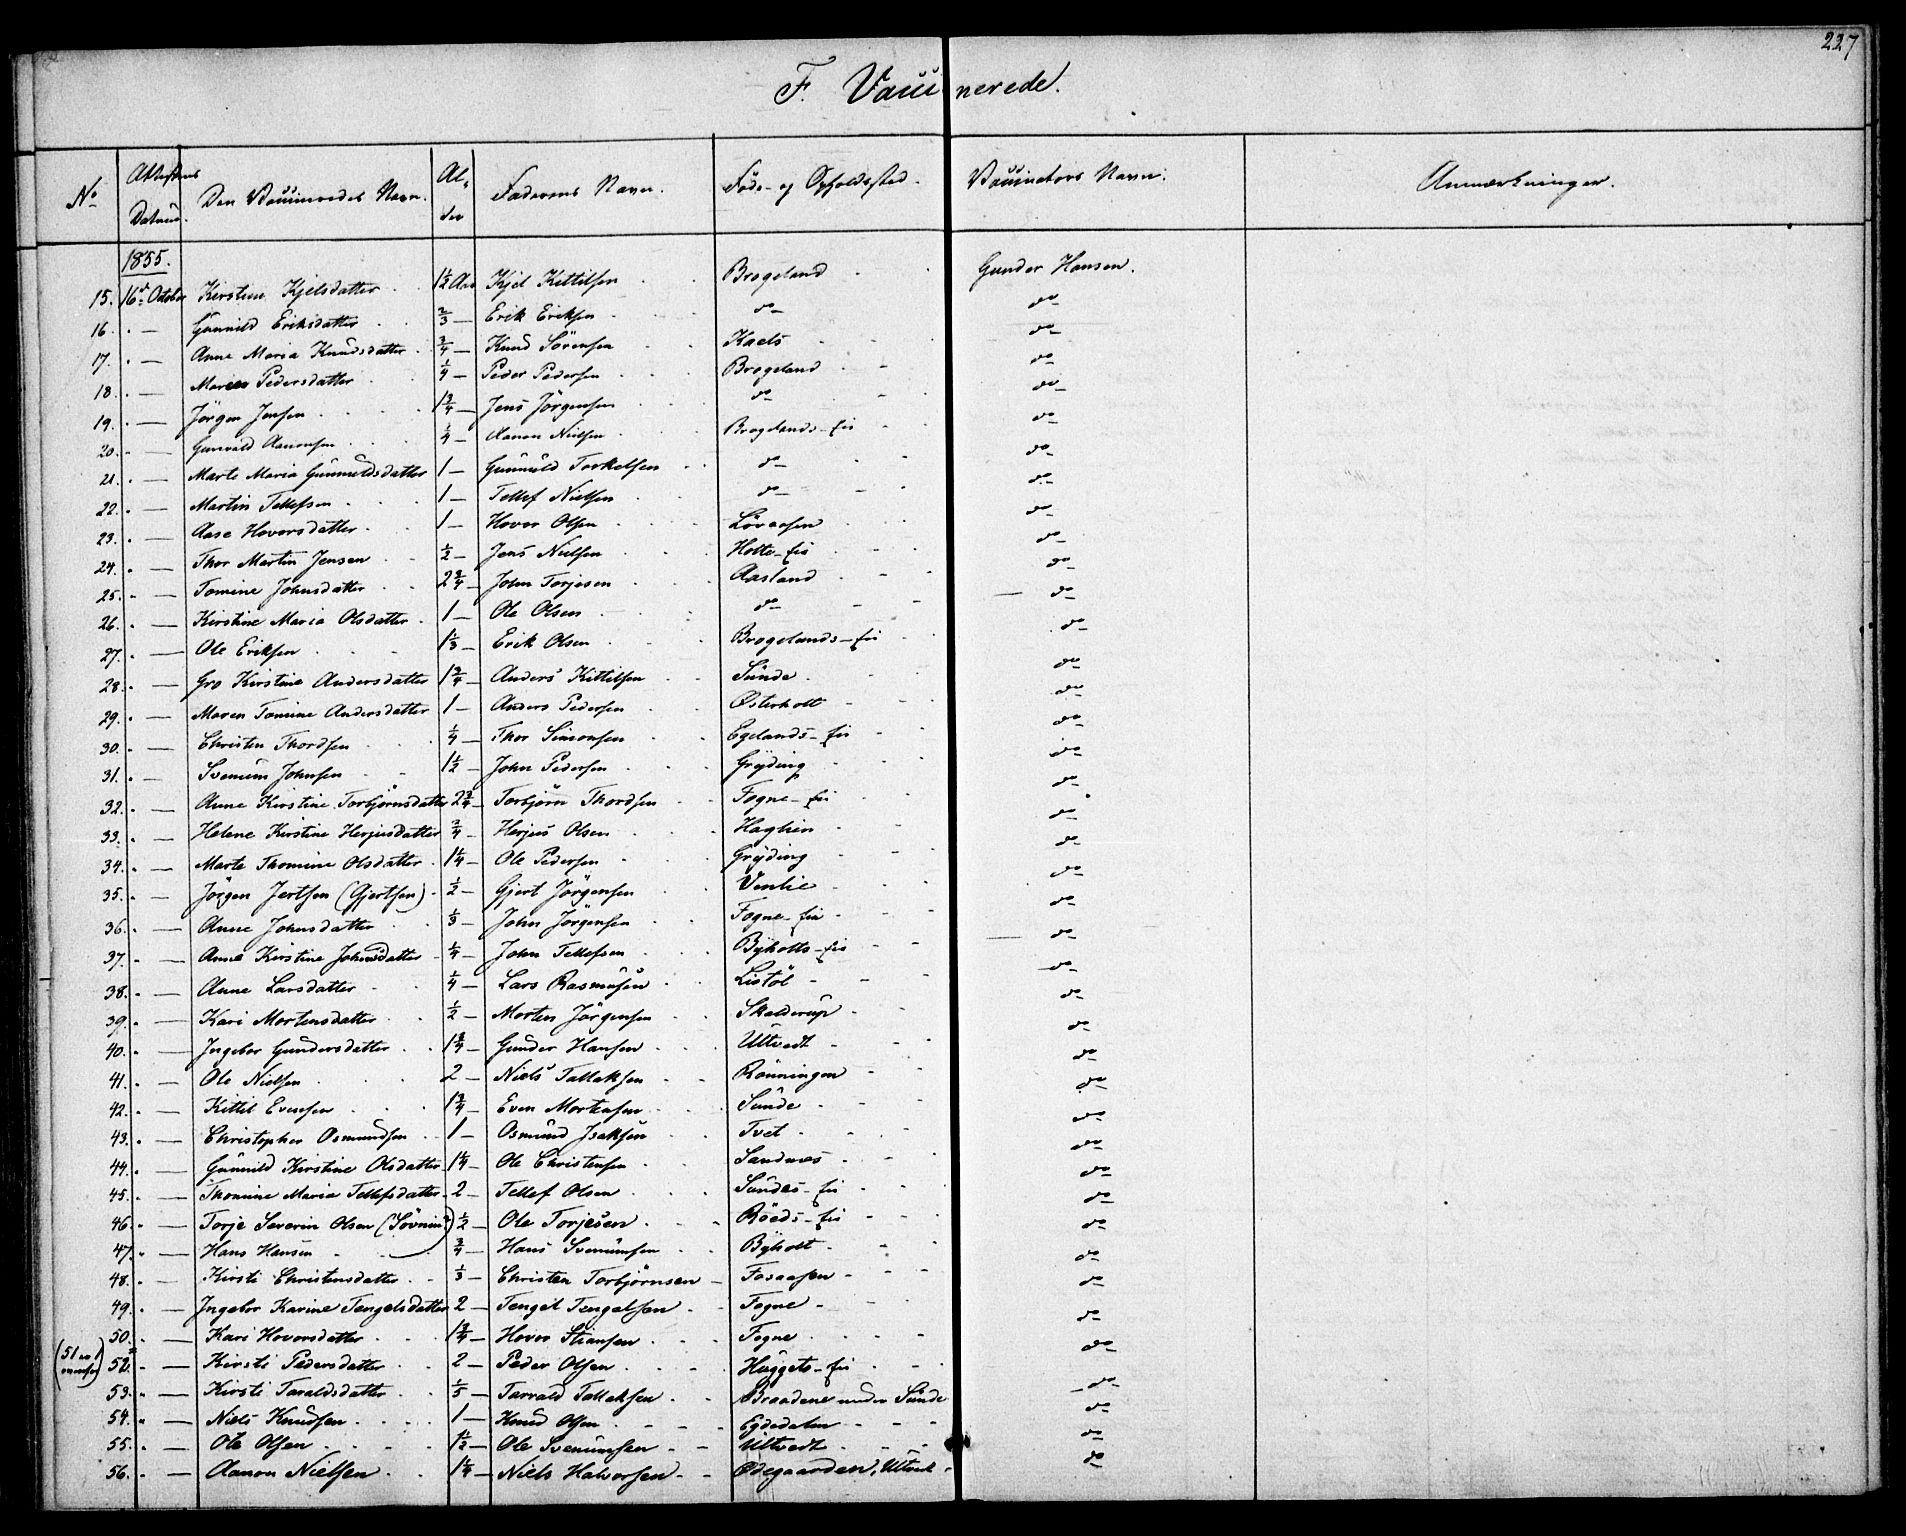 227
F. Vaccinerede.
No Attestens Datum. Den Vaccineredes Navn. Alder Faderens Navn. Føde- og Opholdssted. Vaccinators Navn. Anmærkninger.
1855.
15. 16d October Kirstine Kjelsdatter 1½ Aar Kjel Kittilsen Brogeland Gunder Hansen.
16. " — Gunnild Eriksdatter ⅔ — Erik Eriksen do do
17. " — Anne Maria Knudsdatter ¾ — Knud Sörensen Kaels do
18. " — Maren Pedersdatter ¼ — Peder Pedersen Brogeland do
19. " — Jörgen Jensen 1¾ — Jens Jörgensen do do
20. " — Gunvald Aanonsen ¼ — Aanon Nielsen Brogelands-eie do
21. " — Marte Maria Gunnuldsdatter 1 — Gunnuld Torkelsen do do
22. " — Martin Tellefsen 1 — Tellef Nielsen do do
23. " — Aase Hovorsdatter 1 — Hovor Olsen Lövaasen do
24. " — Thor Martin Jensen ½ — Jens Nielsen Holte-eie do
25. " — Tomine Johnsdatter 2¾ — John Torjesen Aasland do
26. " — Kirstine Maria Olsdatter 1 — Ole Olsen do do
27. " — Ole Eriksen 1⅓ — Erik Olsen Brogelands-eie do
28. " — Gro Kirstine Andersdatter 1¾ — Anders Kittilsen Sunde do
29. " — Maren Tomine Andersdatter 1 — Anders Pedersen Østerholt do
30. " — Christen Thordsen ¼ — Thor Simonsen Egelands-eie do
31. " — Svenum Johnsen 1½ — John Pedersen Gryding do
32. " — Anne Kirstine Torbjörnsdatter 2¾ — Torbjörn Thordsen Fogne-eie do
33. " — Helene Kirstine Herjusdatter ¾ — Herjus Olsen Haghien do
34. " — Marte Thomine Olsdatter 1¼ — Ole Pedersen Gryding do
35. " — Jörgen Jertsen (Gjertsen) ½ — Gjert Jörgensen Venlie do
36. " — Anne Johnsdatter ⅓ — John Jörgensen Fogne-eie do
37. " — Anne Kirstine Johnsdatter ¼ — John Tellefsen Byholts-eie do
38. " — Anne Larsdatter ¼ — Lars Rasmusen Listöl do
39. " — Kari Mortensdatter ½ — Morten Jörgensen Skalderup do
40. " — Ingebor Gundersdatter 1¾ — Gunder Hansen Ultvedt do
41. " — Ole Nielsen 2 — Niels Tallaksen Rönningen do
42. " — Kittil Evensen 1¾ — Even Mortensen Sunde do
43. " — Christopher Osmundsen 1 — Osmund Isaksen Tvet do
44. " — Gunnild Kirstine Olsdatter 1¼ — Ole Christensen Sandnes do
45. " — Thomine Maria Tellefsdatter 2 — Tellef Olsen Sundes-eie do
46. " — Torje Severin Olsen (Sövnin?) ½ — Ole Torjesen Röeds-eie do
47. " — Hans Hansen ¾ — Hans Svenumsen Byholt do
48. " — Kirsti Christensdatter ⅓ — Christen Torbjörnsen Fosaasen do
49. " — Ingebor Karine Tengelsdatter 2 — Tengel Tengelsen Fogne do
50. " — Kari Hovorsdatter 1¾ — Hovor Stiansen Fogne do
(51 52. " — Kirsti Pedersdatter 2 — Peder Olsen Huggets-eie do
53. " — Kirsti Taraldsdatter ⅕ — Tarald Tallaksen Braadene under Sunde do
54. " — Niels Knudsen 1 — Knud Olsen Egdedalen do
55. " — Ole Olsen 1½ — Ole Svenumsen Ultvedt do
56. " — Aanon Nielsen 1¼ — Niels Halvorsen Ødegaarden, Ultvet do